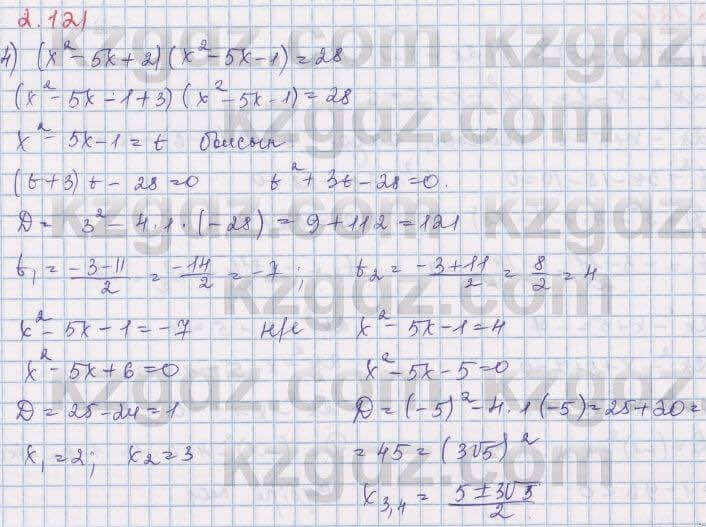 2.121
4) (x² - 5x + 2)(x² - 5x - 1) = 28
(x² - 5x - 1 + 3)(x² - 5x - 1) = 28
x² - 5x - 1 = t болсын
(t + 3)t - 28 = 0 t² + 3t - 28 = 0.
D = 3² - 4·1·(-28) = 9 + 112 = 121
t₁ = (-3-11)/2 = -14/2 = -7; t₂ = (-3+11)/2 = 8/2 = 4
x² - 5x - 1 = -7 н/е x² - 5x - 1 = 4
x² - 5x + 6 = 0 x² - 5x - 5 = 0
D = 25 - 24 = 1 D = (-5)² - 4·1(-5) = 25 + 20 =
x₁ = 2; x₂ = 3 = 45 = (3√5)²
x₃,₄ = (5 ± 3√5)/2
kzgdz.com